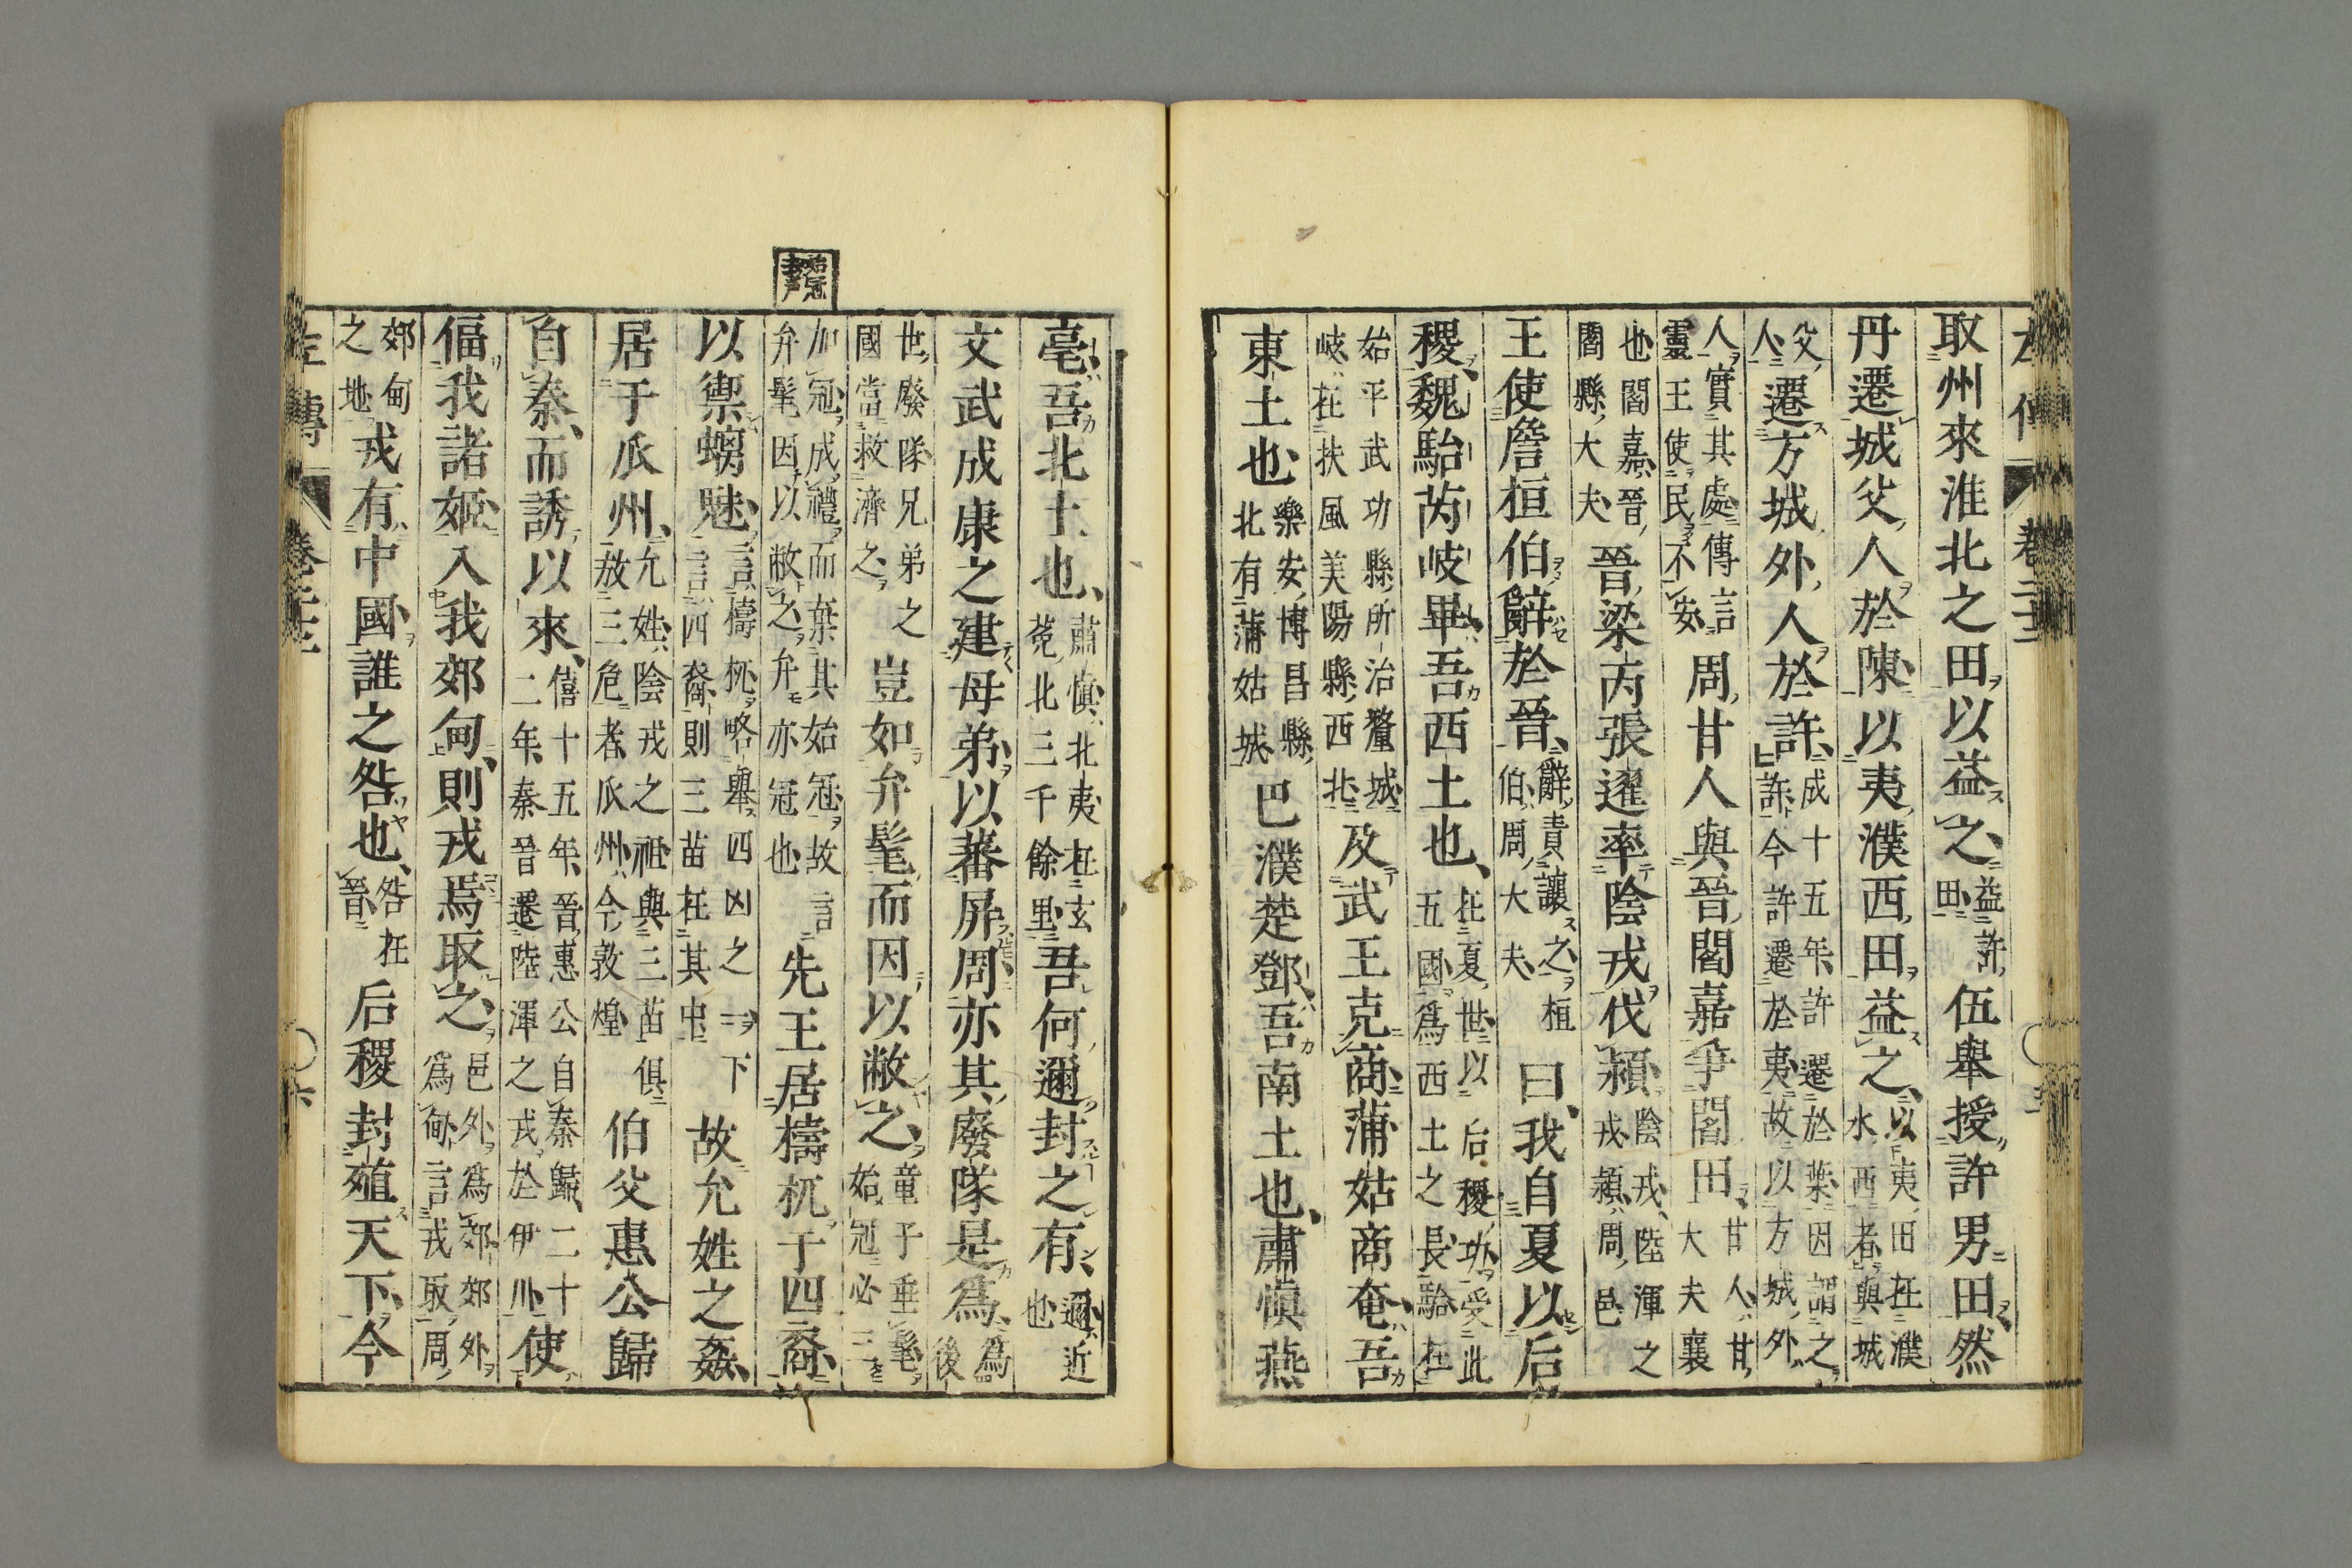 取州來淮北之田以益之益許田伍舉授許男田然
丹遷城父人於陳以夷濮西田益之以夷田在濮水西者與城
父人遷方城外人於許成十五年許遷於葉因謂之許今許遷於夷故以方城外
人實其處傳言靈王使民不安周甘人與晉閻嘉爭閻田甘人甘大夫襄
也閻嘉晉閻縣大夫晉梁丙張趯率陰戎伐潁陰戎陸渾之戎潁周邑
王使詹桓伯辭於晉辭責讓之桓伯周大夫曰我自夏以后
稷魏駘芮岐畢吾西土也在夏世以后稷功受此五國爲西土之長駘在
始平武功縣所治釐城岐在扶風美陽縣西北及武王克商蒲姑商奄吾
東土也樂安博昌縣北有蒲姑城巴濮楚鄧吾南土也肅愼燕
亳吾北土也肅愼北夷在玄菟北三千餘里吾何邇封之有邇近也
文武成康之建母弟以蕃屏周亦其廢隊是爲爲後
世廢隊兄弟之國當救濟之豈如弁髦而因以敝之童子垂髦始冠必三
加冠成禮而棄其始冠故言弁髦因以敝之弁亦冠也先王居檮杌于四裔
以禦螭魅言檮杌略舉四凶之一下言四裔則三苗在其中故允姓之姦
居于瓜州允姓陰戎之祖與三苗俱放三危者瓜州今敦煌伯父惠公歸
自秦而誘以來僖十五年晉惠公自秦歸二十二年秦晉遷陸渾之戎於伊川使
偪我諸姬入我郊甸則戎焉取之邑外爲郊郊外爲甸言戎取周
郊甸之地戎有中國誰之咎也咎在晉后稷封殖天下今
左傳
六